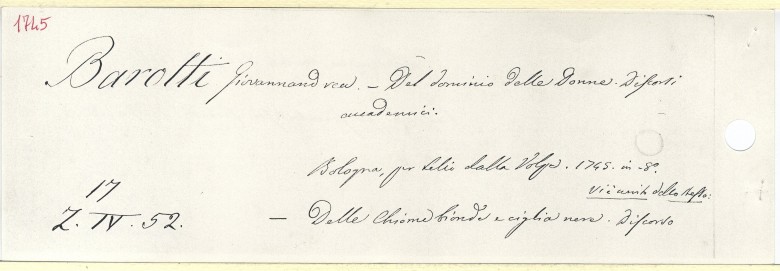 1745
Barotti Giovannandrea. – Del dominio delle Donne. Discorsi
accademici.
Bologna, per Lelio dalla Volpe. 1745. in-8°.
17
Vi è unito dello stesso:
Z. IV. 52.
– Delle chiome bionde e ciglia nere. Discorso